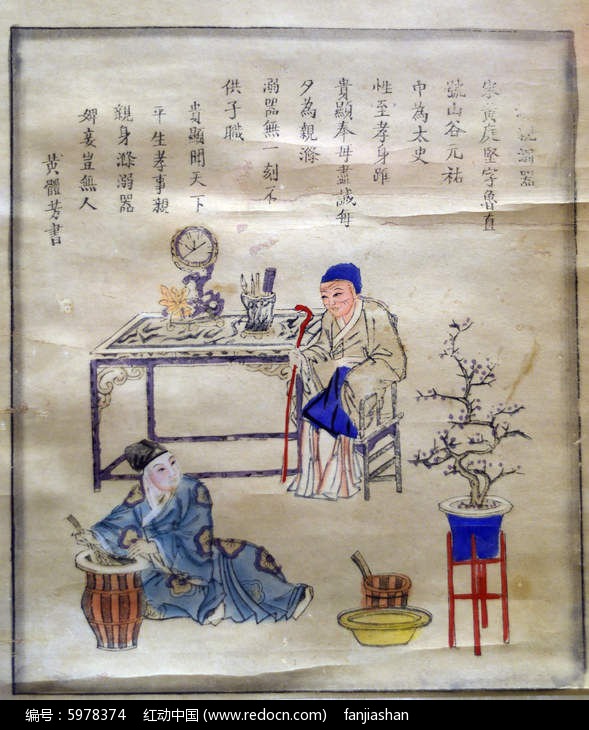 親溺器
宋黃庭堅字魯直
號山谷元祐
中為太史
性至孝身雖
貴顯奉母盡誠每
夕為親滌
溺器無一刻不
供子職
貴顯聞天下
平生孝事親
親身滌溺器
婢妾豈無人
黃體芳書
编号：5978374 红动中国 (www.redocn.com) fanjiashan